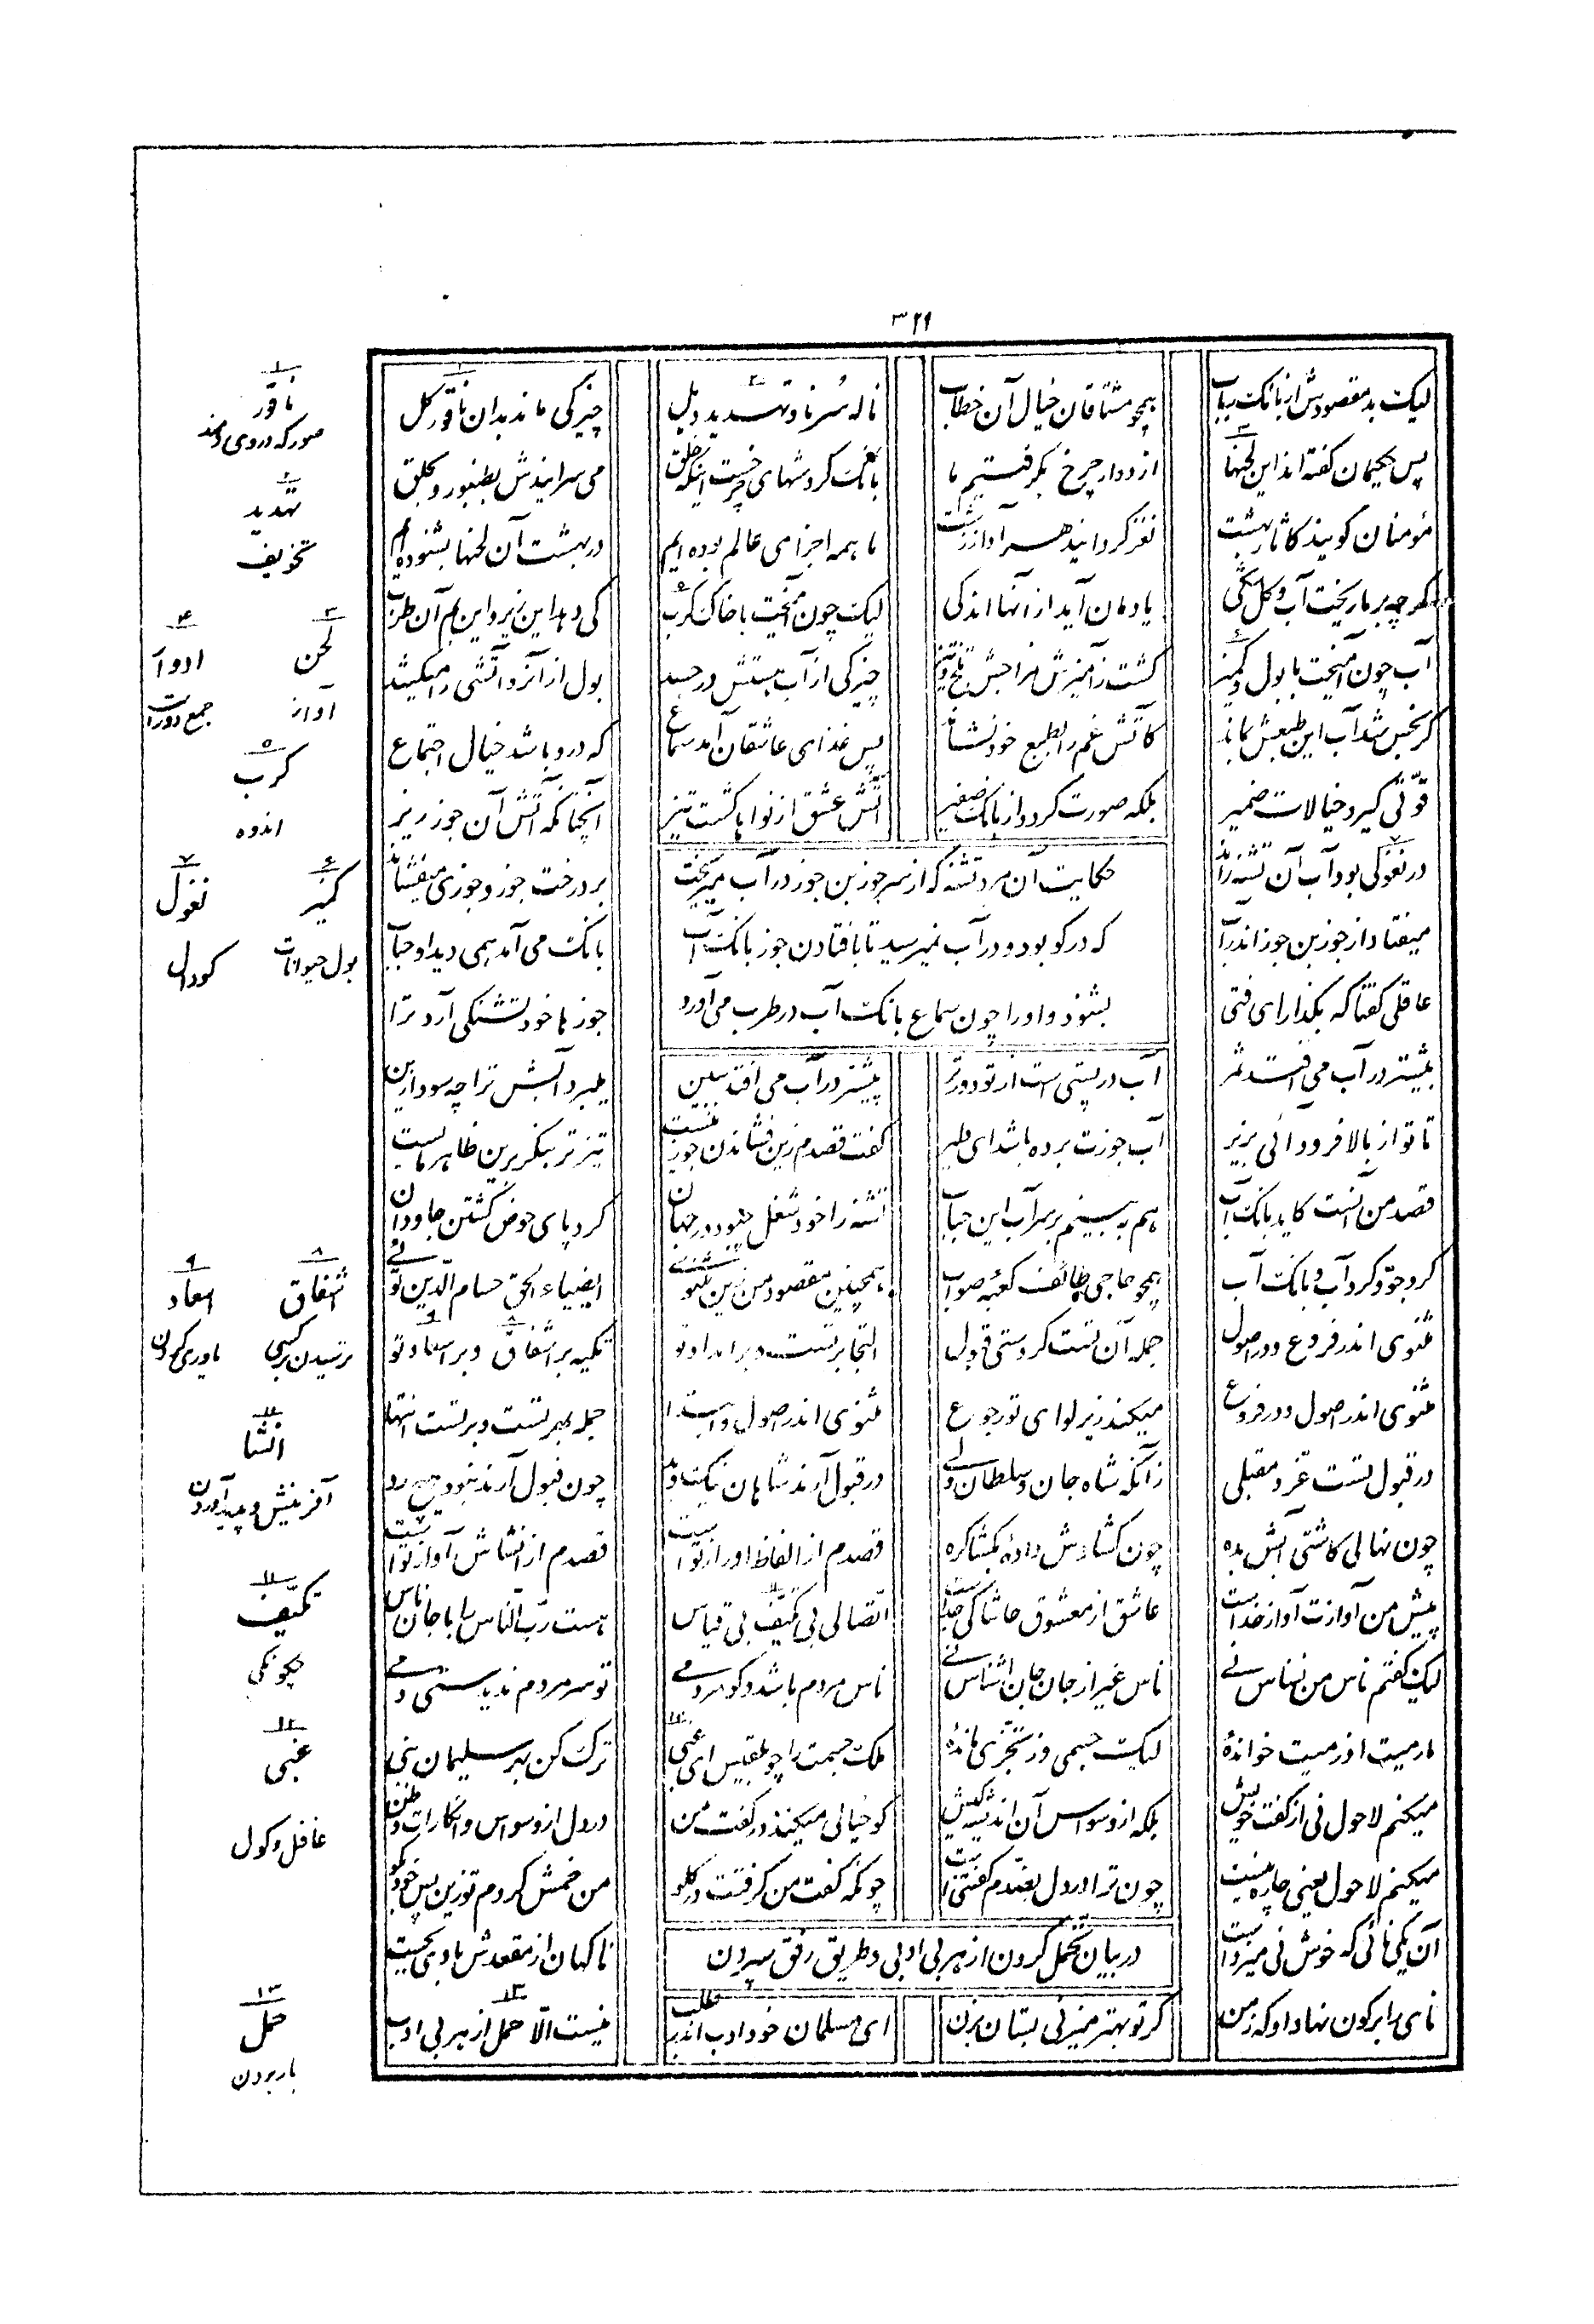 ۳۲۹
لیک بد مقصودش از بانک رباب همچو مشتاقان خیال آن خطاب ناله سرنا و تهدید دهل چیزکی ماند بدان ناقور کل
پس حکیمان گفته اند این لحنها از دوار چرخ بگرفتیم ما بانک گردشهای چرخست اینکه خلق می سرایندش بطنبور و بحلق
مؤمنان گویند کاثار بهشت نغز گردانید هر آواز زشت ما همه اجزای عالم بوده ایم در بهشت آن لحنها بشنوده ایم
گرچه بر ما ریخت آب و گل شکی یادمان آید از آنها اندکی لیک چون آمیخت با خاک کرب کی دهد این زیر و این بم آن طرب
آب چون آمیخت با بول و کمیز گشت ز آمیزش مزاجش تلخ و تیز چیزکی از آب هستش در جسد بول از آنرو آتشی را میکشد
گر نجس شد آب این طبعش بماند کاتش غم را بطبع خود نشاند پس غذای عاشقان آمد سماع که درو باشد خیال اجتماع
قوتی گیرد خیالات ضمیر بلکه صورت گردد از بانک صفیر آتش عشق از نواها گشت تیز آنچنانکه آتش آن جوز ریز
حکایت آن مرد تشنه که از سر جوزبن جوز در آب میریخت
که در گو بود و در آب نمیرسید تا بافتادن جوز بانک آب
بشنود و او را چون سماع بانک آب در طرب می آورد
در نغولی بود آب آن تشنه راند بر درخت جوز و جوزی میفشاند
میفتاد از جوزبن جوز اندر آب بانک می آمد همی دید او حباب
عاقلی گفتا که بگذار ای فتی جوزها خود تشنگی آرد ترا
بیشتر در آب می افتد ثمر آب در پستی است از تو دور تر بیشتر در آب می افتد ببین میبرد آبش ترا چه سود ازین
تا تو از بالا فرود آئی بزیر آب جوزت برده باشد ای دلیر گفت قصدم زین فشاندن جوز نیست تیزتر بنگر برین ظاهر مایست
قصد من آنست کاید بانک آب هم ببینم بر سر آب این حباب تشنه را خود شغل چبود در جهان گرد پای حوض گشتن جاودان
گرد جو و گرد آب و بانک آب همچو حاجی طائف کعبه صواب همچنین مقصود من زین مثنوی ایضیاء الحق حسام الدین توئی
مثنوی اندر فروع و در اصول جمله آن تست کردستی قبول التجا بر تست و بر امداد تو تکیه بر اشفاق و بر اسعاد تو
مثنوی اندر اصول و در فروع میکند زیر لوای تو رجوع مثنوی اندر اصول و ابتدا جمله بهر تست و بر تست انتها
در قبول تست عز و مقبلی زآنکه شاه جان و سلطان ولی در قبول آرند شاهان نیک و بد چون قبول آرند نبود هیچ رد
چون نهالی کاشتی آبش بده چون گشادش داده بگشا گره قصدم از الفاظ او راز تو است قصدم از انشاش آواز تو است
پیش من آوازت آواز خداست عاشق از معشوق حاشا کی جداست اتصالی بی تکیف بی قیاس هست رب الناس را با جان ناس
لیک گفتم ناس من نسناس نی ناس غیر از جان جان اشناس نی ناس مردم باشد و کو مردمی تو سر مردم ندیدستی دمی
ما رمیت اذ رمیت خوانده لیک جسمی وز تجزی مانده ملک جسمت را چو بلقیس ای غبی ترک کن بهر سلیمان نبی
میکنم لاحول نی از گفت خویش بلکه از وسواس آن اندیشه کیش کو خیالی میکند در گفت من در دل از وسواس و انکارات و ظن
میکنم لاحول یعنی چاره نیست چون ترا در دل بضدم گفتنی است چونکه گفت من گرفتت در گلو من خمش کردم تو زین پس خود بگو
در بیان تحمل کردن از هر بی ادبی و طریق رفق سپردن
آن یکی نائی که خوش نی میزده است ناگهان از مقعدش بادی بجست
نای را بر کون نهاد او که ز من گر تو بهتر میزنی بستان بزن ای مسلمان خود ادب اندر طلب نیست الا حمل از هر بی ادب
۱
ناقور
صور که در وی دمند
۲
تهدید
تخویف
۳ ۴
لحن ادوار
آواز جمع دوران
۵
کرب
اندوه
۶ ۷
کمیز نغول
بول حیوانات گودال
۸ ۹
اشفاق اسعاد
ترسیدن بر کسی یاوری کردن
۱۰
انشا
آفرینش و پدید آوردن
۱۱
تکیف
چگونگی
۱۲
غبی
غافل و کول
۱۳
حمل
بار بردن